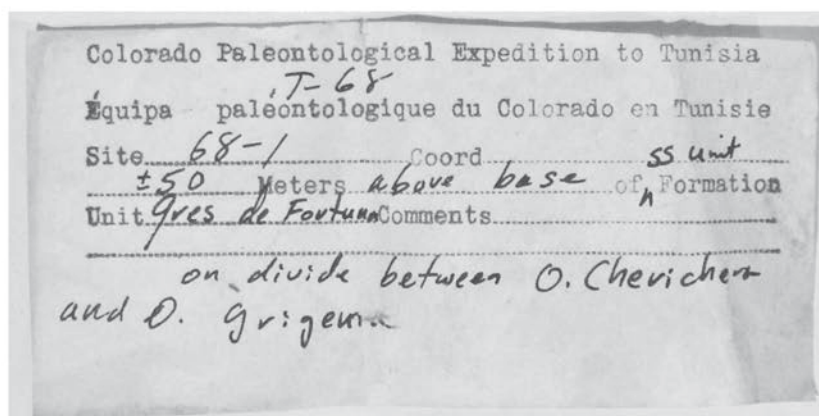 Colorado Paleontological Expedition to Tunisia
T-68
Équipa paléontologique du Colorado en Tunisie
Site 68-1 Coord ss unit
±50 Meters above base of Formation
Unit Gres de Fortuna Comments
on divide between O. Chericher
and O. Grigema